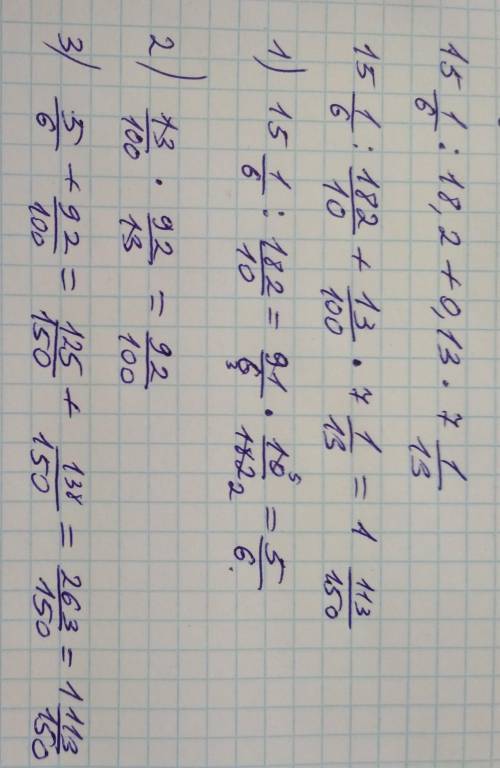 15 1/6 : 18,2 + 0,13 · 7 1/13
15 1/6 : 182/10 + 13/100 · 7 1/13 = 1 113/150
1) 15 1/6 : 182/10 = 91/6 3 · 10 5/182 2 = 5/6.
2) 13/100 · 92/13 = 92/100
3) 5/6 + 92/100 = 125/150 + 138/150 = 263/150 = 1 113/150